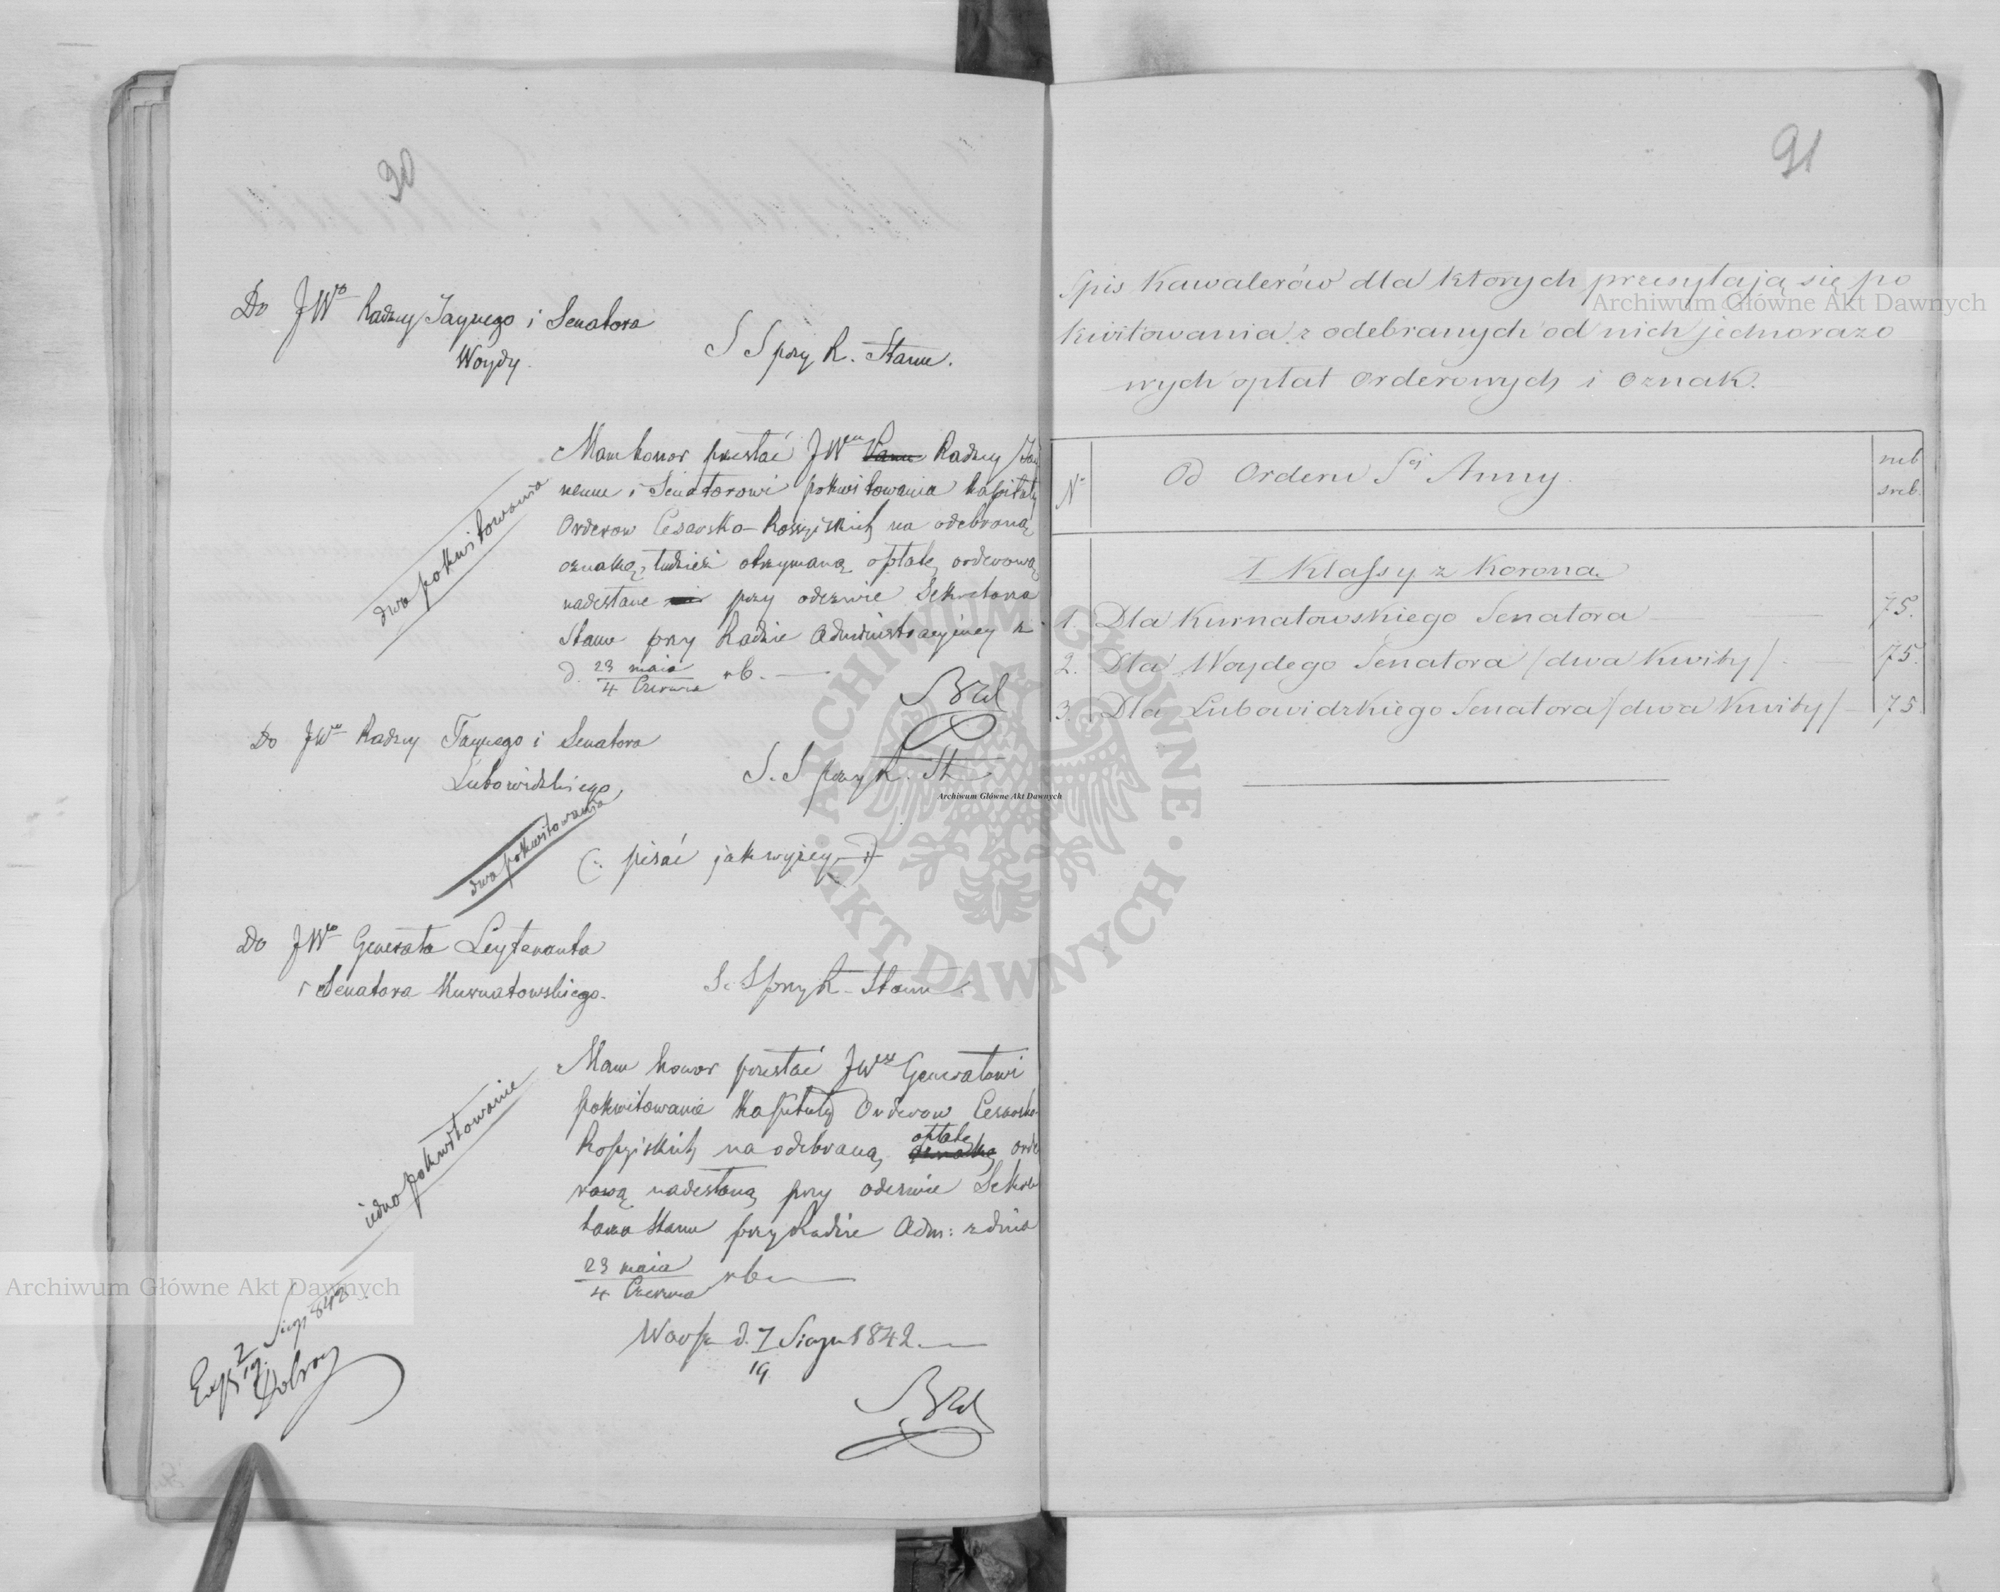 90
Do JWo Radzcy Taynego i Senatora
Woydy.
S S przy R. Stanu.
Mam honor przesłać JWmu Panu Radzcy Tay
nemu i Senatorowi pokwitowania Kapituły
Orderow Cesarsko-Rossyiskich na odebraną
oznakę, tudzież otrzymaną opłatę orderową
nadesłane przy odezwie Sekretarza
Stanu przy Radzie Administracyjney z
d. 23 maia / 4 Czerwca rb.
dwa pokwitowania
Do JWo Radzcy Taynego i Senatora
Lubowidzkiego,
S. S przy R. St
dwa pokwitowania
(: pisać jak wyżey :)
Do JWo Generała Leytenanta
i Senatora Kurnatowskiego.
S. S przy R. Stanu
Mam honor przesłać JW Generałowi
pokwitowanie Kapituły Orderow Cesarsko
Rossyiskich na odebraną oznakę opłatę orde
rową nadesłaną przy odezwie Sekre
tarza Stanu przy Radzie Adm: z dnia
23 maia / 4 Czerwca rb
iedno pokwitowanie
Warsz d. 7/19 Stycz 1842.
91
Spis Kawalerów dla których przesyłają się po
kwitowania z odebranych od nich jednorazo
wych opłat Orderowych i Oznak.
No Od Orderu Sej Anny. rub sreb.
I Klassy z Koroną.
1. Dla Kurnatowskiego Senatora 75.
2. Dla Woydego Senatora /dwa kwity/ 75.
3. Dla Lubowidzkiego Senatora /dwa kwity/ 75
Archiwum Główne Akt Dawnych
Archiwum Główne Akt Dawnych
Archiwum Główne Akt Dawnych
ARCHIWUM GŁÓWNE AKT DAWNYCH